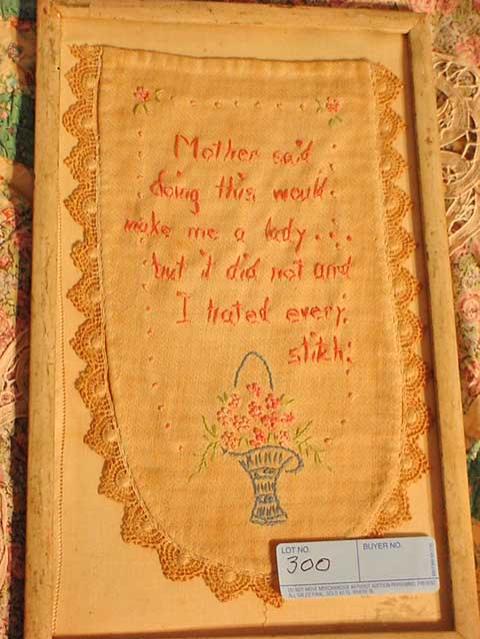 Mother said
doing this would
make me a lady...
but it did not and
I hated every
stitch.
LOT NO.
BUYER NO.
300
DO NOT MOVE MERCHANDISE WITHOUT AUCTION PERSONNEL PRESENT
ALL SALES FINAL, SOLD AS IS, WHERE IS.